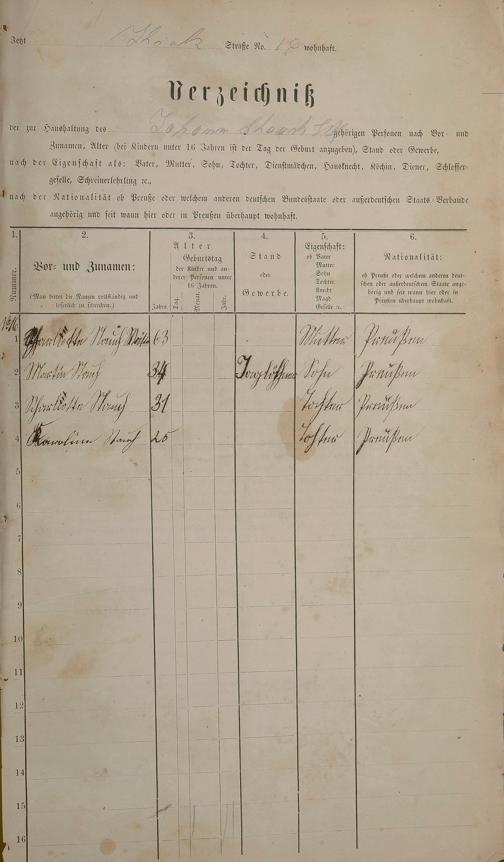 Jetzt Straße No. 10 wohnhaft.
Verzeichniß
der zur Haushaltung des Johann gehörigen Personen nach Vor- und
Zunamen, Alter (bei Kindern unter 16 Jahren ist der Tag der Geburt anzugeben), Stand oder Gewerbe,
nach der Eigenschaft als: Vater, Mutter, Sohn, Tochter, Dienstmädchen, Hausknecht, Köchin, Diener, Schlosser-
geselle, Schreinerlehrling ꝛc.,
nach der Nationalität ob Preuße oder welchem anderen deutschen Bundesstaate oder außerdeutschen Staats-Verbande
angehörig und seit wann hier oder in Preußen überhaupt wohnhaft.
1. 2. 3. 4. 5. 6.
Nummer.
Vor- und Zunamen:
(Man bittet die Namen vollständig und
leserlich zu schreiben.)
Alter
Geburtstag
der Kinder und an-
derer Personen unter
16 Jahren.
Jahre. Tag. Monat. Jahr.
Stand
oder
Gewerbe.
Eigenschaft:
ob Vater
Mutter
Sohn
Tochter
Knecht
Magd
Geselle ꝛc.
Nationalität:
ob Preuße oder welchem anderen deut-
schen oder außerdeutschen Staate ange-
hörig und seit wann hier oder in
Preußen überhaupt wohnhaft.
1 Charlotte Stauch 63 Mutter Preußen
2 Martin Stauch 34 Taglöhner Sohn Preußen
3 Charlotte Stauch 31 Tochter Preußen
4 Karoline Stauch 25 Tochter Preußen
5
6
7
8
9
10
11
12
13
14
15
16